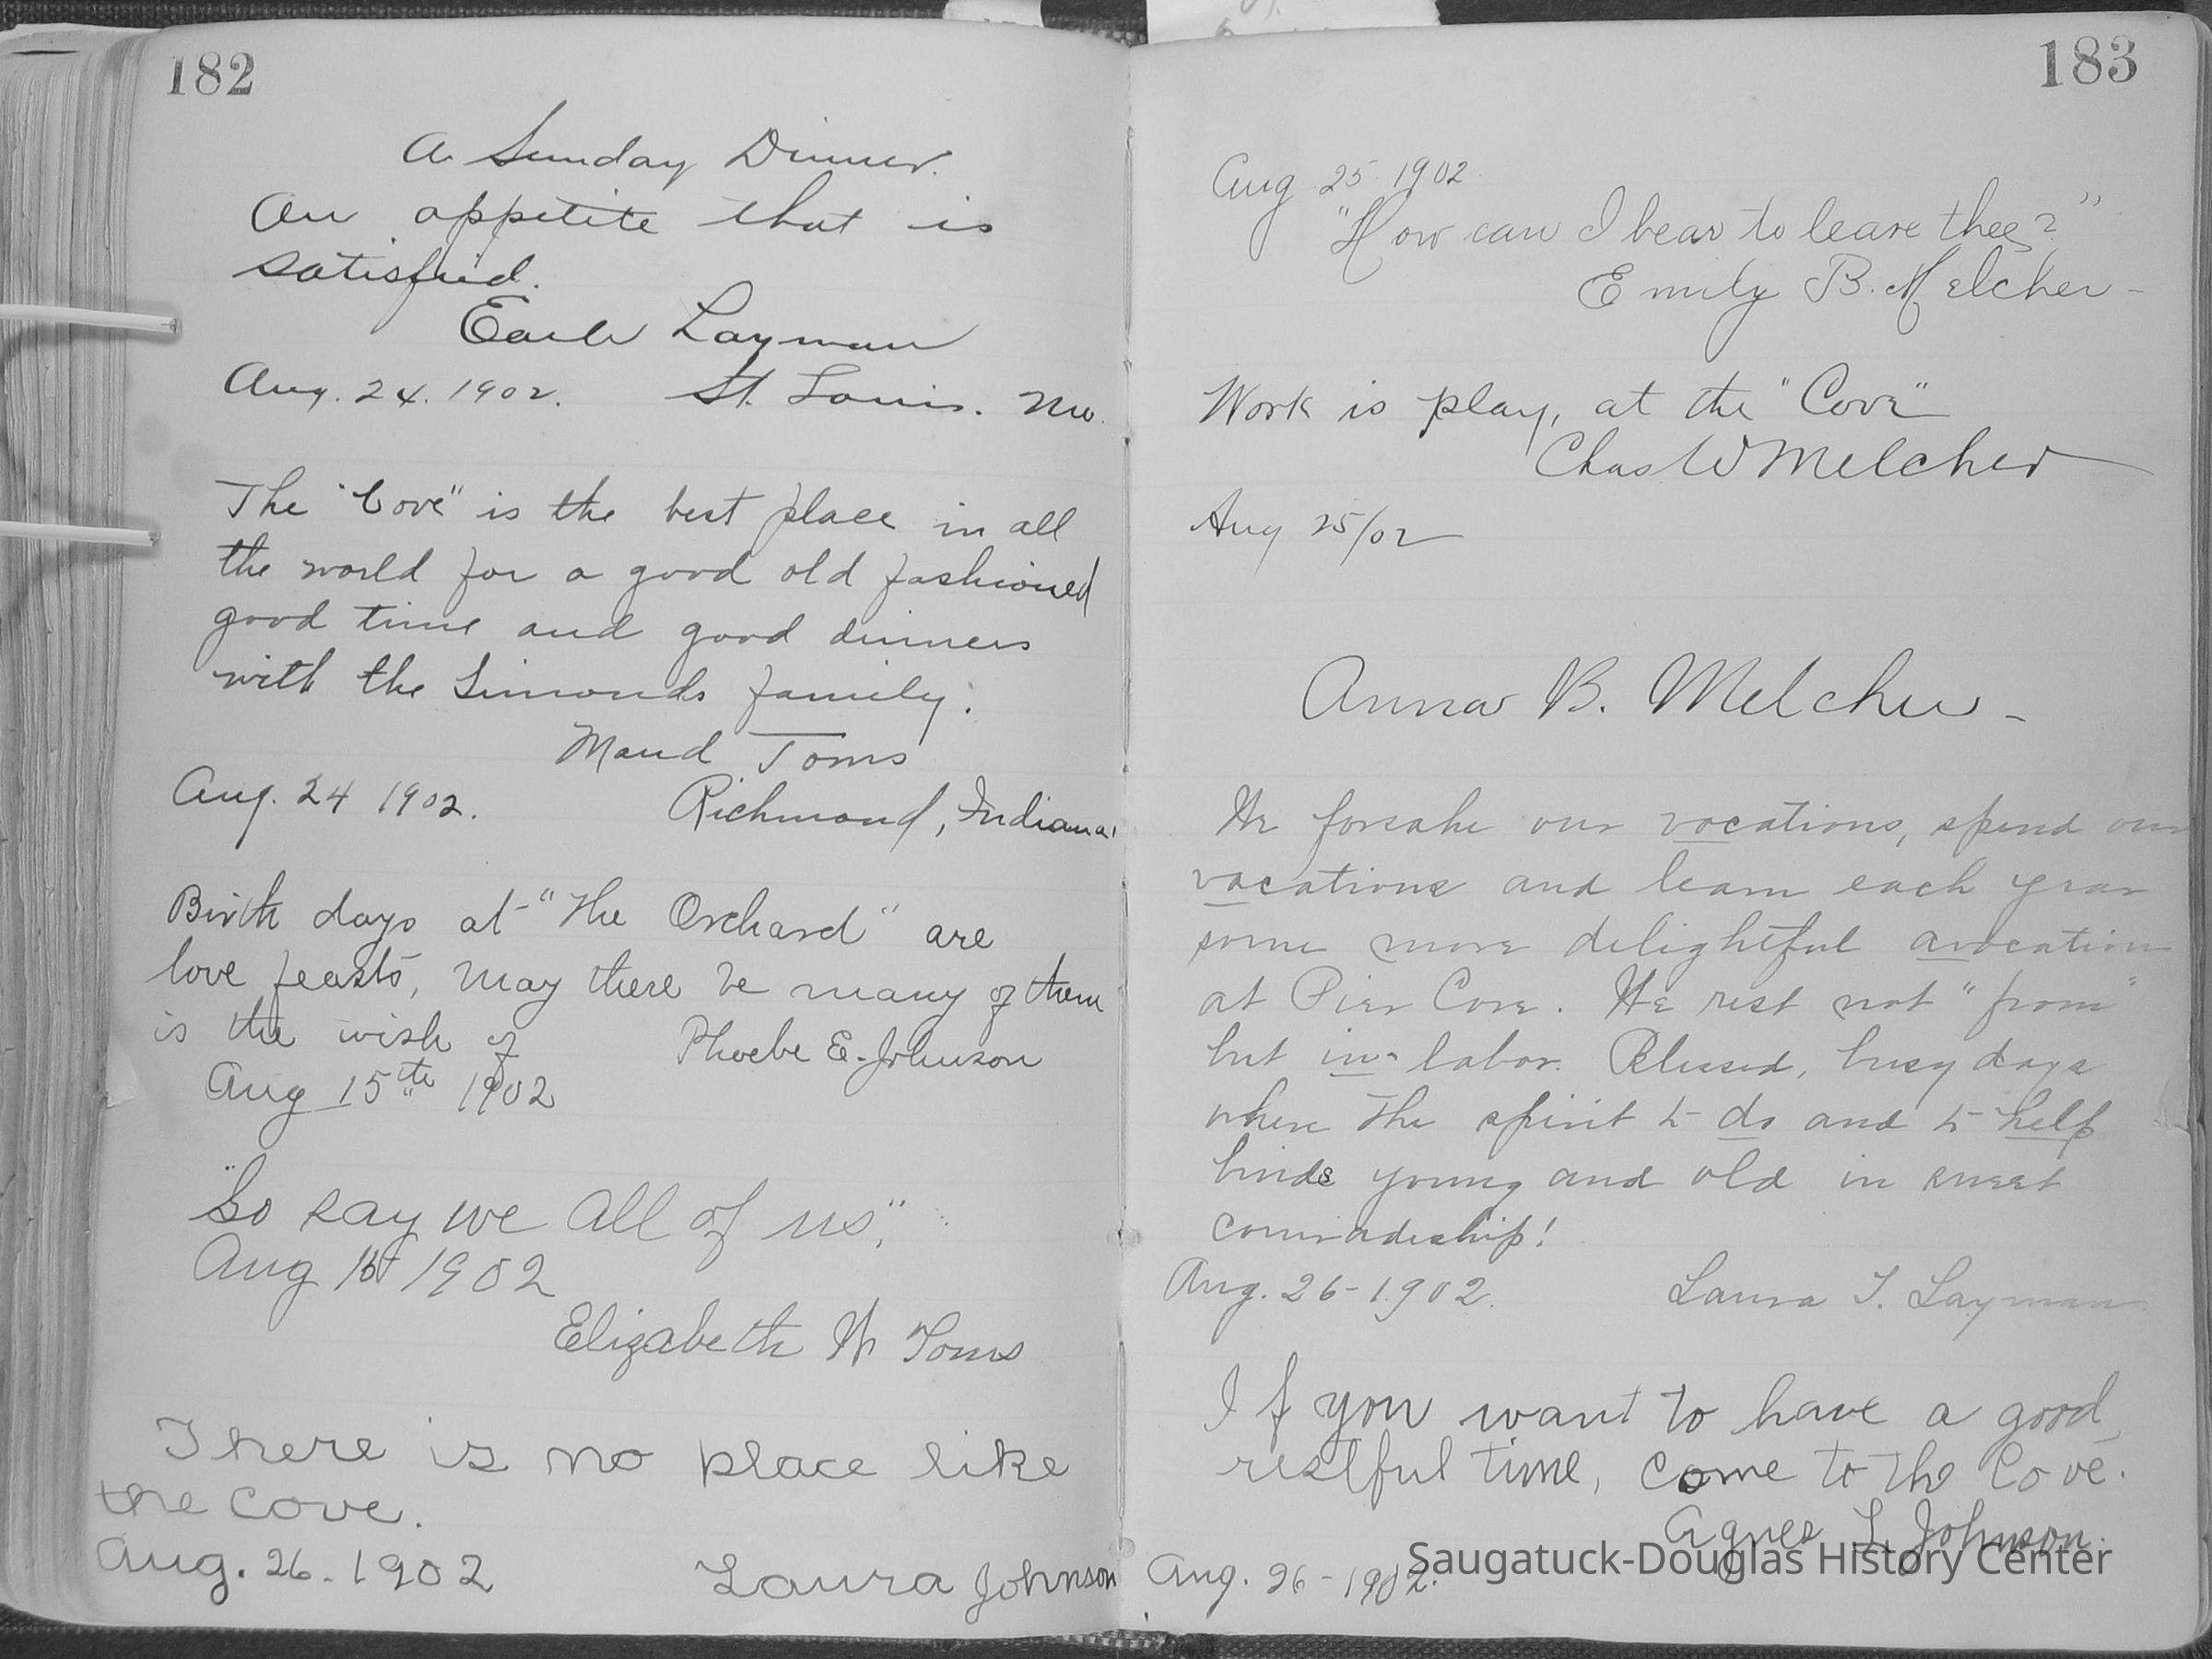 182
A Sunday Dinner.
An appetite that is
satisfied.
Earle Layman
Aug. 24. 1902. St. Louis. Mo.
The "Cove" is the best place in all
the world for a good old fashioned
good time and good dinners
with the Simonds family.
Maud Toms
Aug. 24 1902. Richmond, Indiana.
Birth days at "The Orchard" are
love feasts, may there be many of them
is the wish of Phoebe E. Johnson
Aug 15th 1902
"So say we all of us,"
Aug 1902
Elizabeth W Toms
There is no place like
the Cove.
Aug. 26. 1902 Laura Johnson
183
Aug 25 1902
"How can I bear to leave thee?"
Emily B. Melcher -
Work is play, at the "Cove"
Chas W Melcher
Aug 25/02
Anna B. Melcher -
We forsake our vocations, spend our
vacations and learn each year
some more delightful avocation
at Pier Cove. We rest not "from"
but in labor. Blessed, busy days
where the spirit to do and to help
binds young and old in sweet
comradeship!
Aug. 26 - 1902. Laura T. Layman
If you want to have a good,
restful time, come to the Cove.
Agnes L. Johnson.
Aug. 26 - 1902.
Saugatuck-Douglas History Center